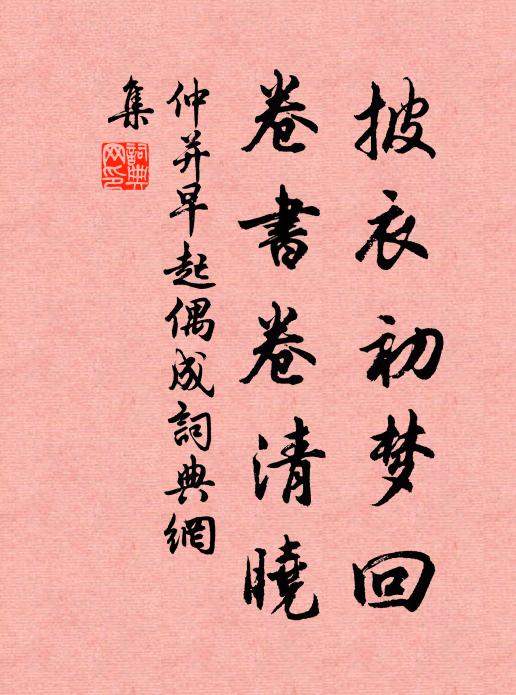 披衣初梦回
卷書卷清曉
仲并早起偶成詞典網
集
詞典網印